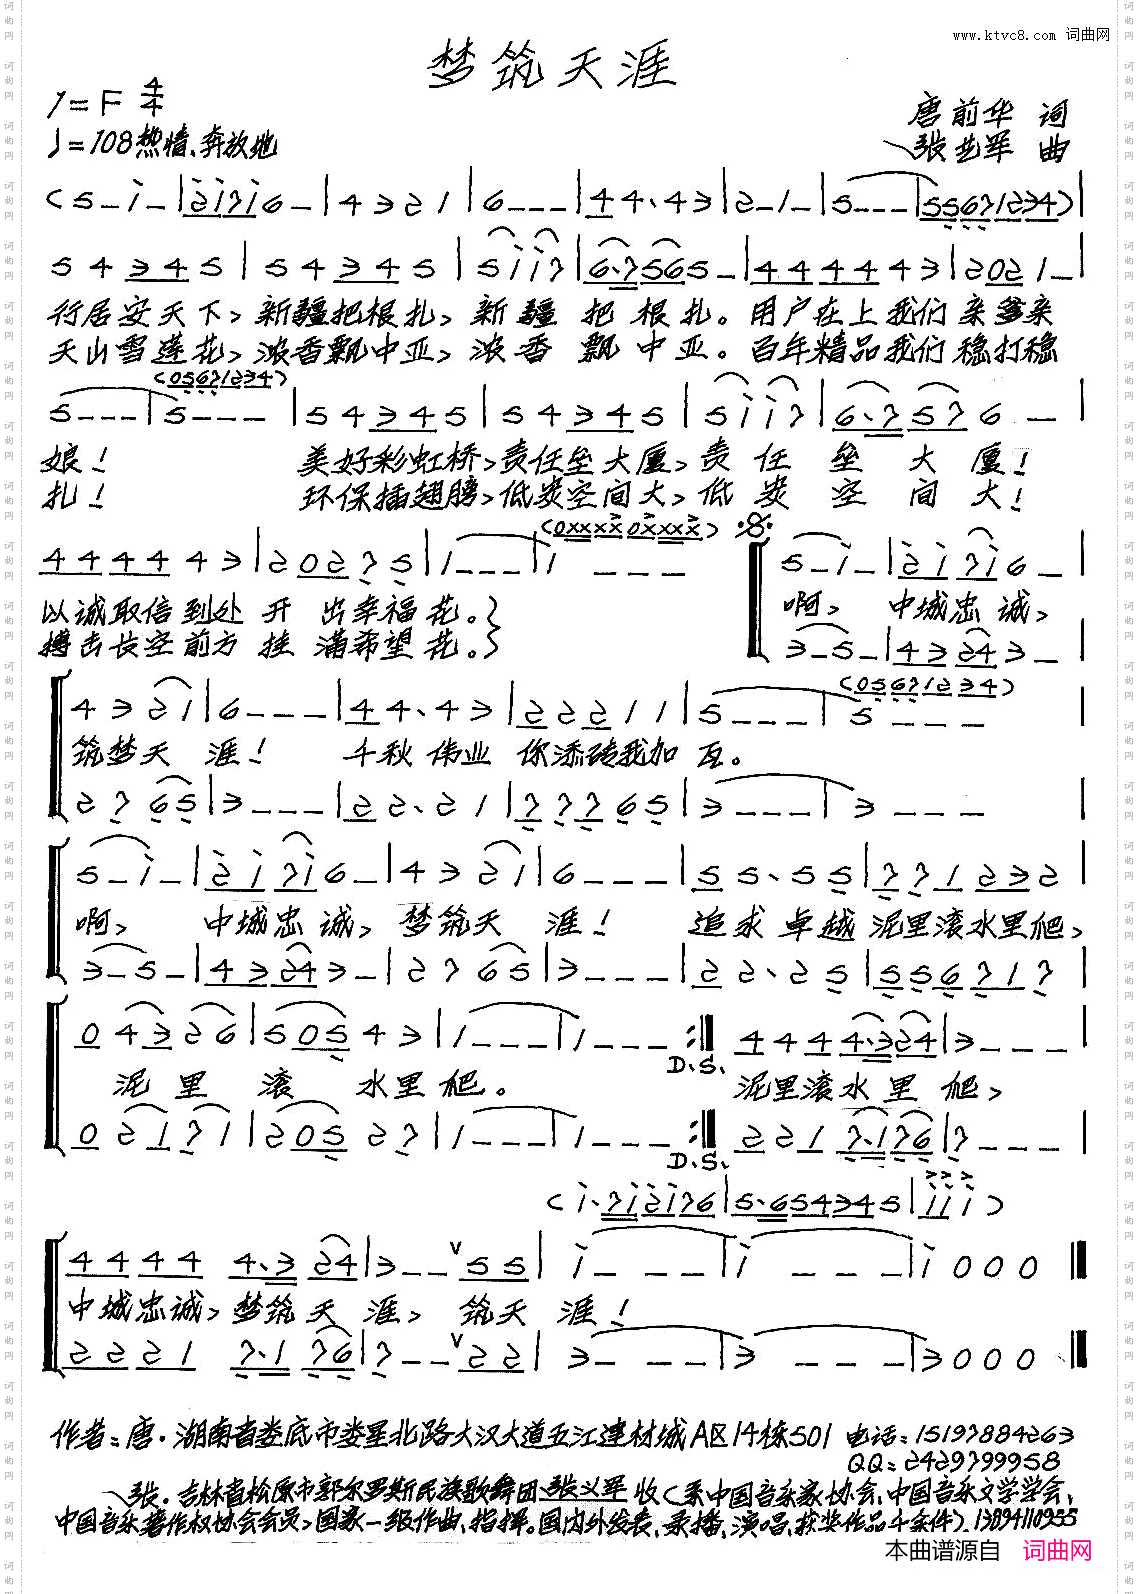 www.ktvc8.com 词曲网
梦筑天涯
1=F 4/4
♩=108热情、奔放地
唐前华 词
张艺军 曲
(5-i-|2i7i6-|4321|6---|44.43|2-1-|5---|55671234)
54345|54345|5ii7|6.7565-|4444443|2021-
行居安天下，新疆把根扎，新疆把根扎。用户在上我们亲爹亲
天山雪莲花，浓香飘中亚，浓香飘中亚。百年精品我们稳打稳
(05671234)
5---|5---|54345|54345|5ii7|6.7576-
娘！美好彩虹桥，责任垒大厦，责任垒大厦！
扎！环保插翅膀，低炭空间大，低炭空间大！
(0xxxx0xxxx)
4444443|20275|1---|1---|5-i-|2i7i6-
以诚取信到处开出幸福花。啊，中城忠诚，
搏击长空前方挂满希望花。
3-5-|43243-
(05671234)
4321|6---|44.43|22211|5---|5---
筑梦天涯！千秋伟业你添砖我加瓦。
2765|3---|22.21|77765|3---|3---
5-i-|2i7i6-|4321|6---|55.55|771232
啊，中城忠诚，梦筑天涯！追求卓越泥里滚水里爬，
3-5-|43243-|2765|3---|22.25|556717
04326|50543|1---|1---:|4444.324|3---
D.S.
泥里滚水里爬。泥里滚水里爬，
02171|20527|1---|1---:|2217.176|7---
D.S.
(i.7i2i76|5.654345|iii)
44444.324|3--55|i---|i---|i000
中城忠诚，梦筑天涯，筑天涯！
22217.176|7--22|3---|3---|3000
作者：唐·湖南省娄底市娄星北路大汉大道五江建材城A区14栋501 电话：15197884263
QQ：2429799958
张·吉林省松原市郭尔罗斯民族歌舞团张义军收(系中国音乐家协会、中国音乐文学学会、
中国音乐著作权协会会员，国家一级作曲、指挥。国内外发表、录播、演唱、获奖作品千余件).13894110955
本曲谱源自 词曲网